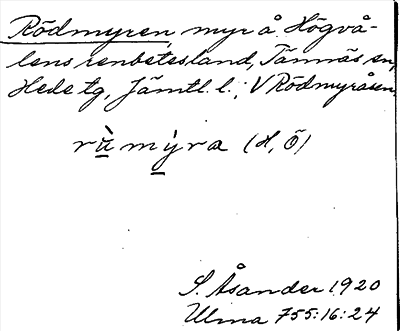 Rödmyren, myr å. Högvå-
lens renbetesland, Tännäs sn,
Hede tg, Jämtl. l.; V Rödmyråsen.
rù̲ mỳ̲ra (H, Ö)
S. Åsander 1920
Ulma 755:16:24